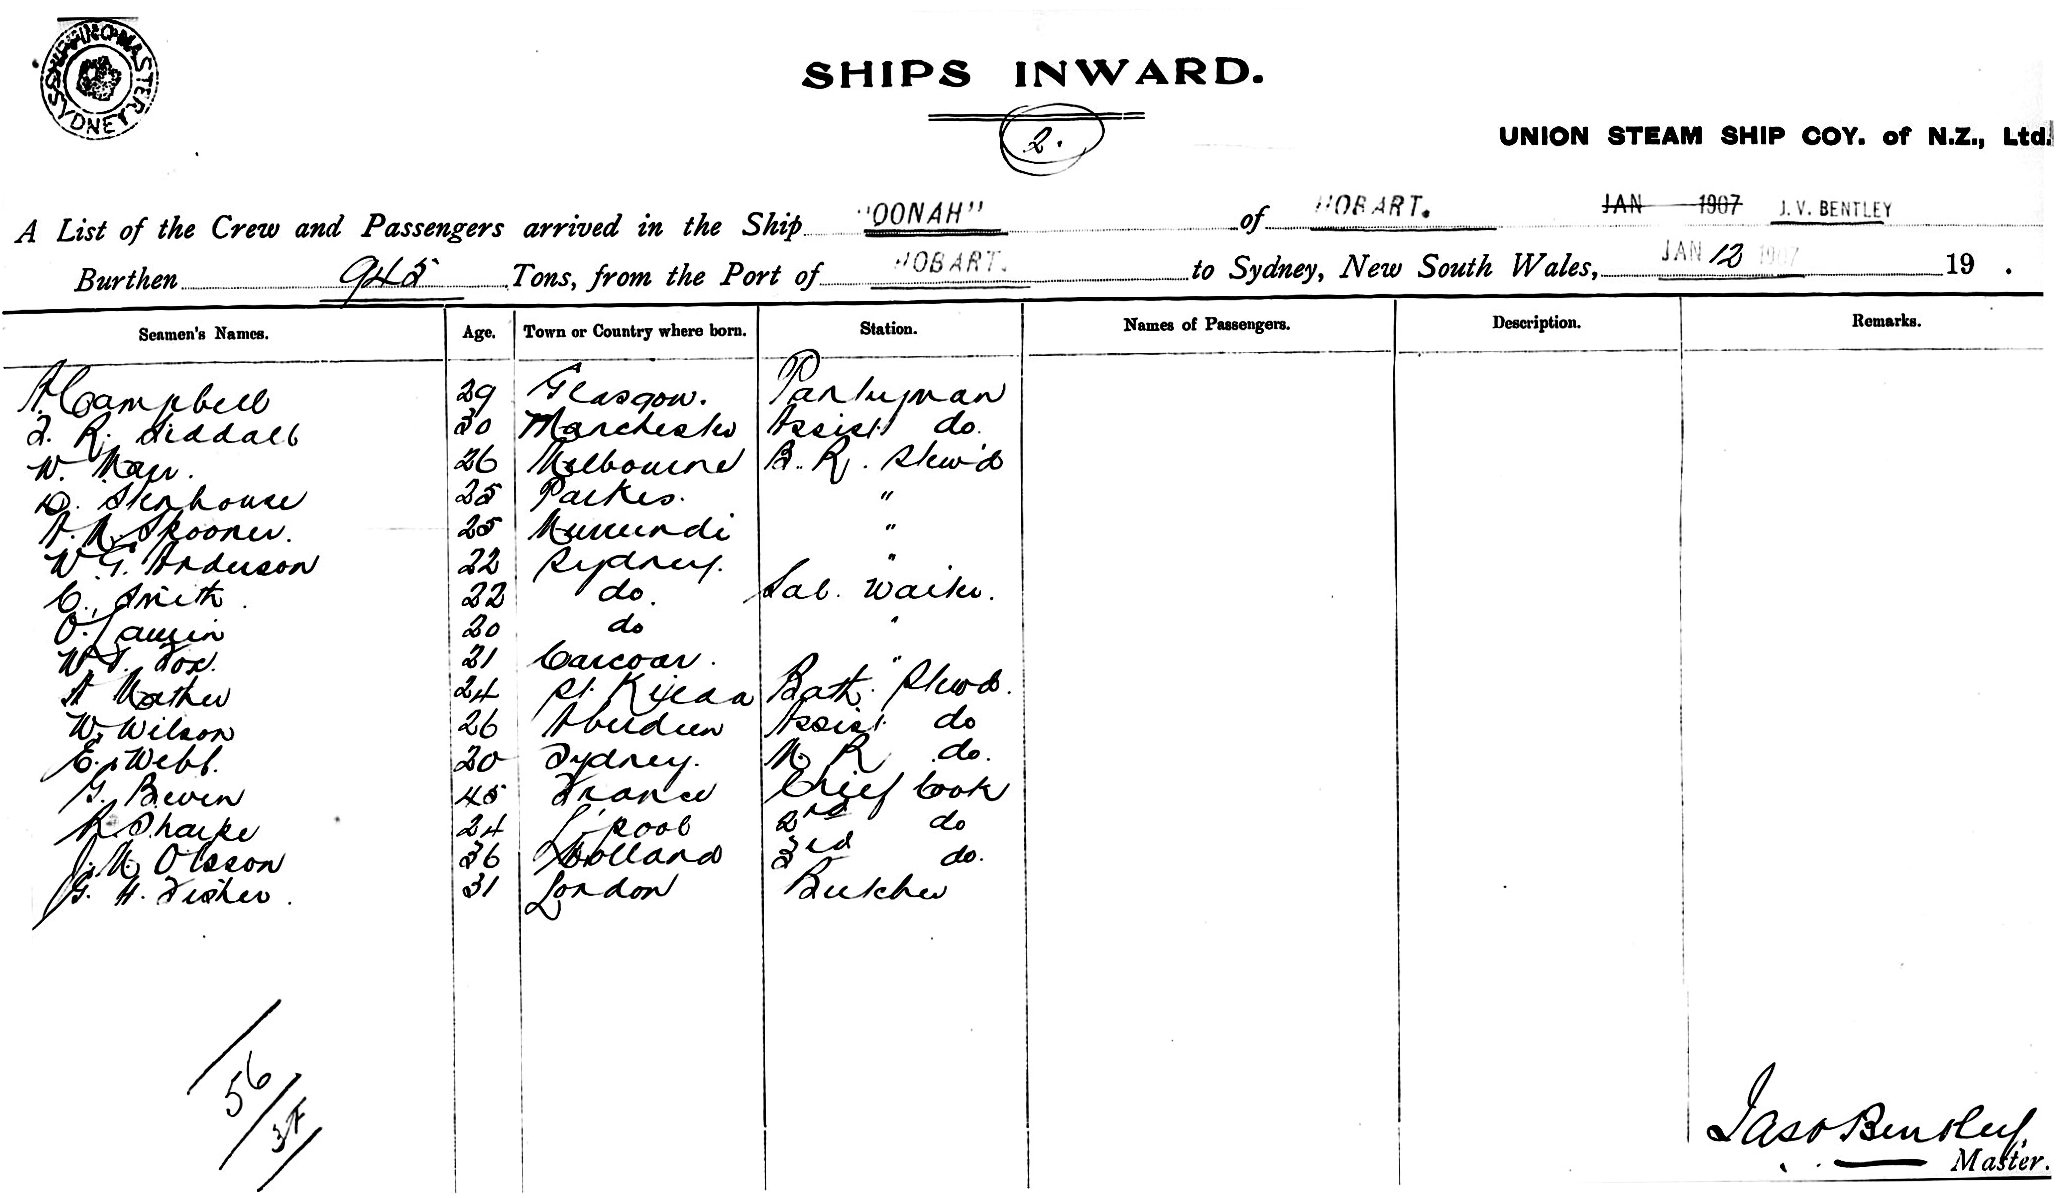 SHIPPING MASTER SYDNEY
SHIPS INWARD.
2.
UNION STEAM SHIP COY. of N.Z., Ltd.
A List of the Crew and Passengers arrived in the Ship "OONAH" of HOBART. JAN 1907 J. V. BENTLEY
Burthen 945 Tons, from the Port of HOBART. to Sydney, New South Wales, JAN 12 1907 19 .
Seamen's Names. Age. Town or Country where born. Station. Names of Passengers. Description. Remarks.
A. Campbell 29 Glasgow. Pantryman
R. Siddall 30 Manchester Assist do.
W. Marr. 26 Melbourne B. R. Stew'd
D. Stenhouse 25 Parkes. "
A. M. Spooner. 25 Murrurundi "
W. G. Anderson 22 Sydney. "
C. Smith. 22 do. Sal. Waiter.
O. Lauzin 20 do "
W. T. Fox. 21 Carcoar. "
A Mather 24 St. Kilda Bath. Stewd.
W. Wilson 26 Aberdeen Assist do
E. Webb. 20 Sydney. M. R do.
G. Beven 45 France Chief Cook
R. Sharpe 24 L'pool 2nd do
J. M. Olsson 36 Holland 3rd do.
G. H. Fisher. 31 London Butcher
56
37
Jas V Bentley.
Master.